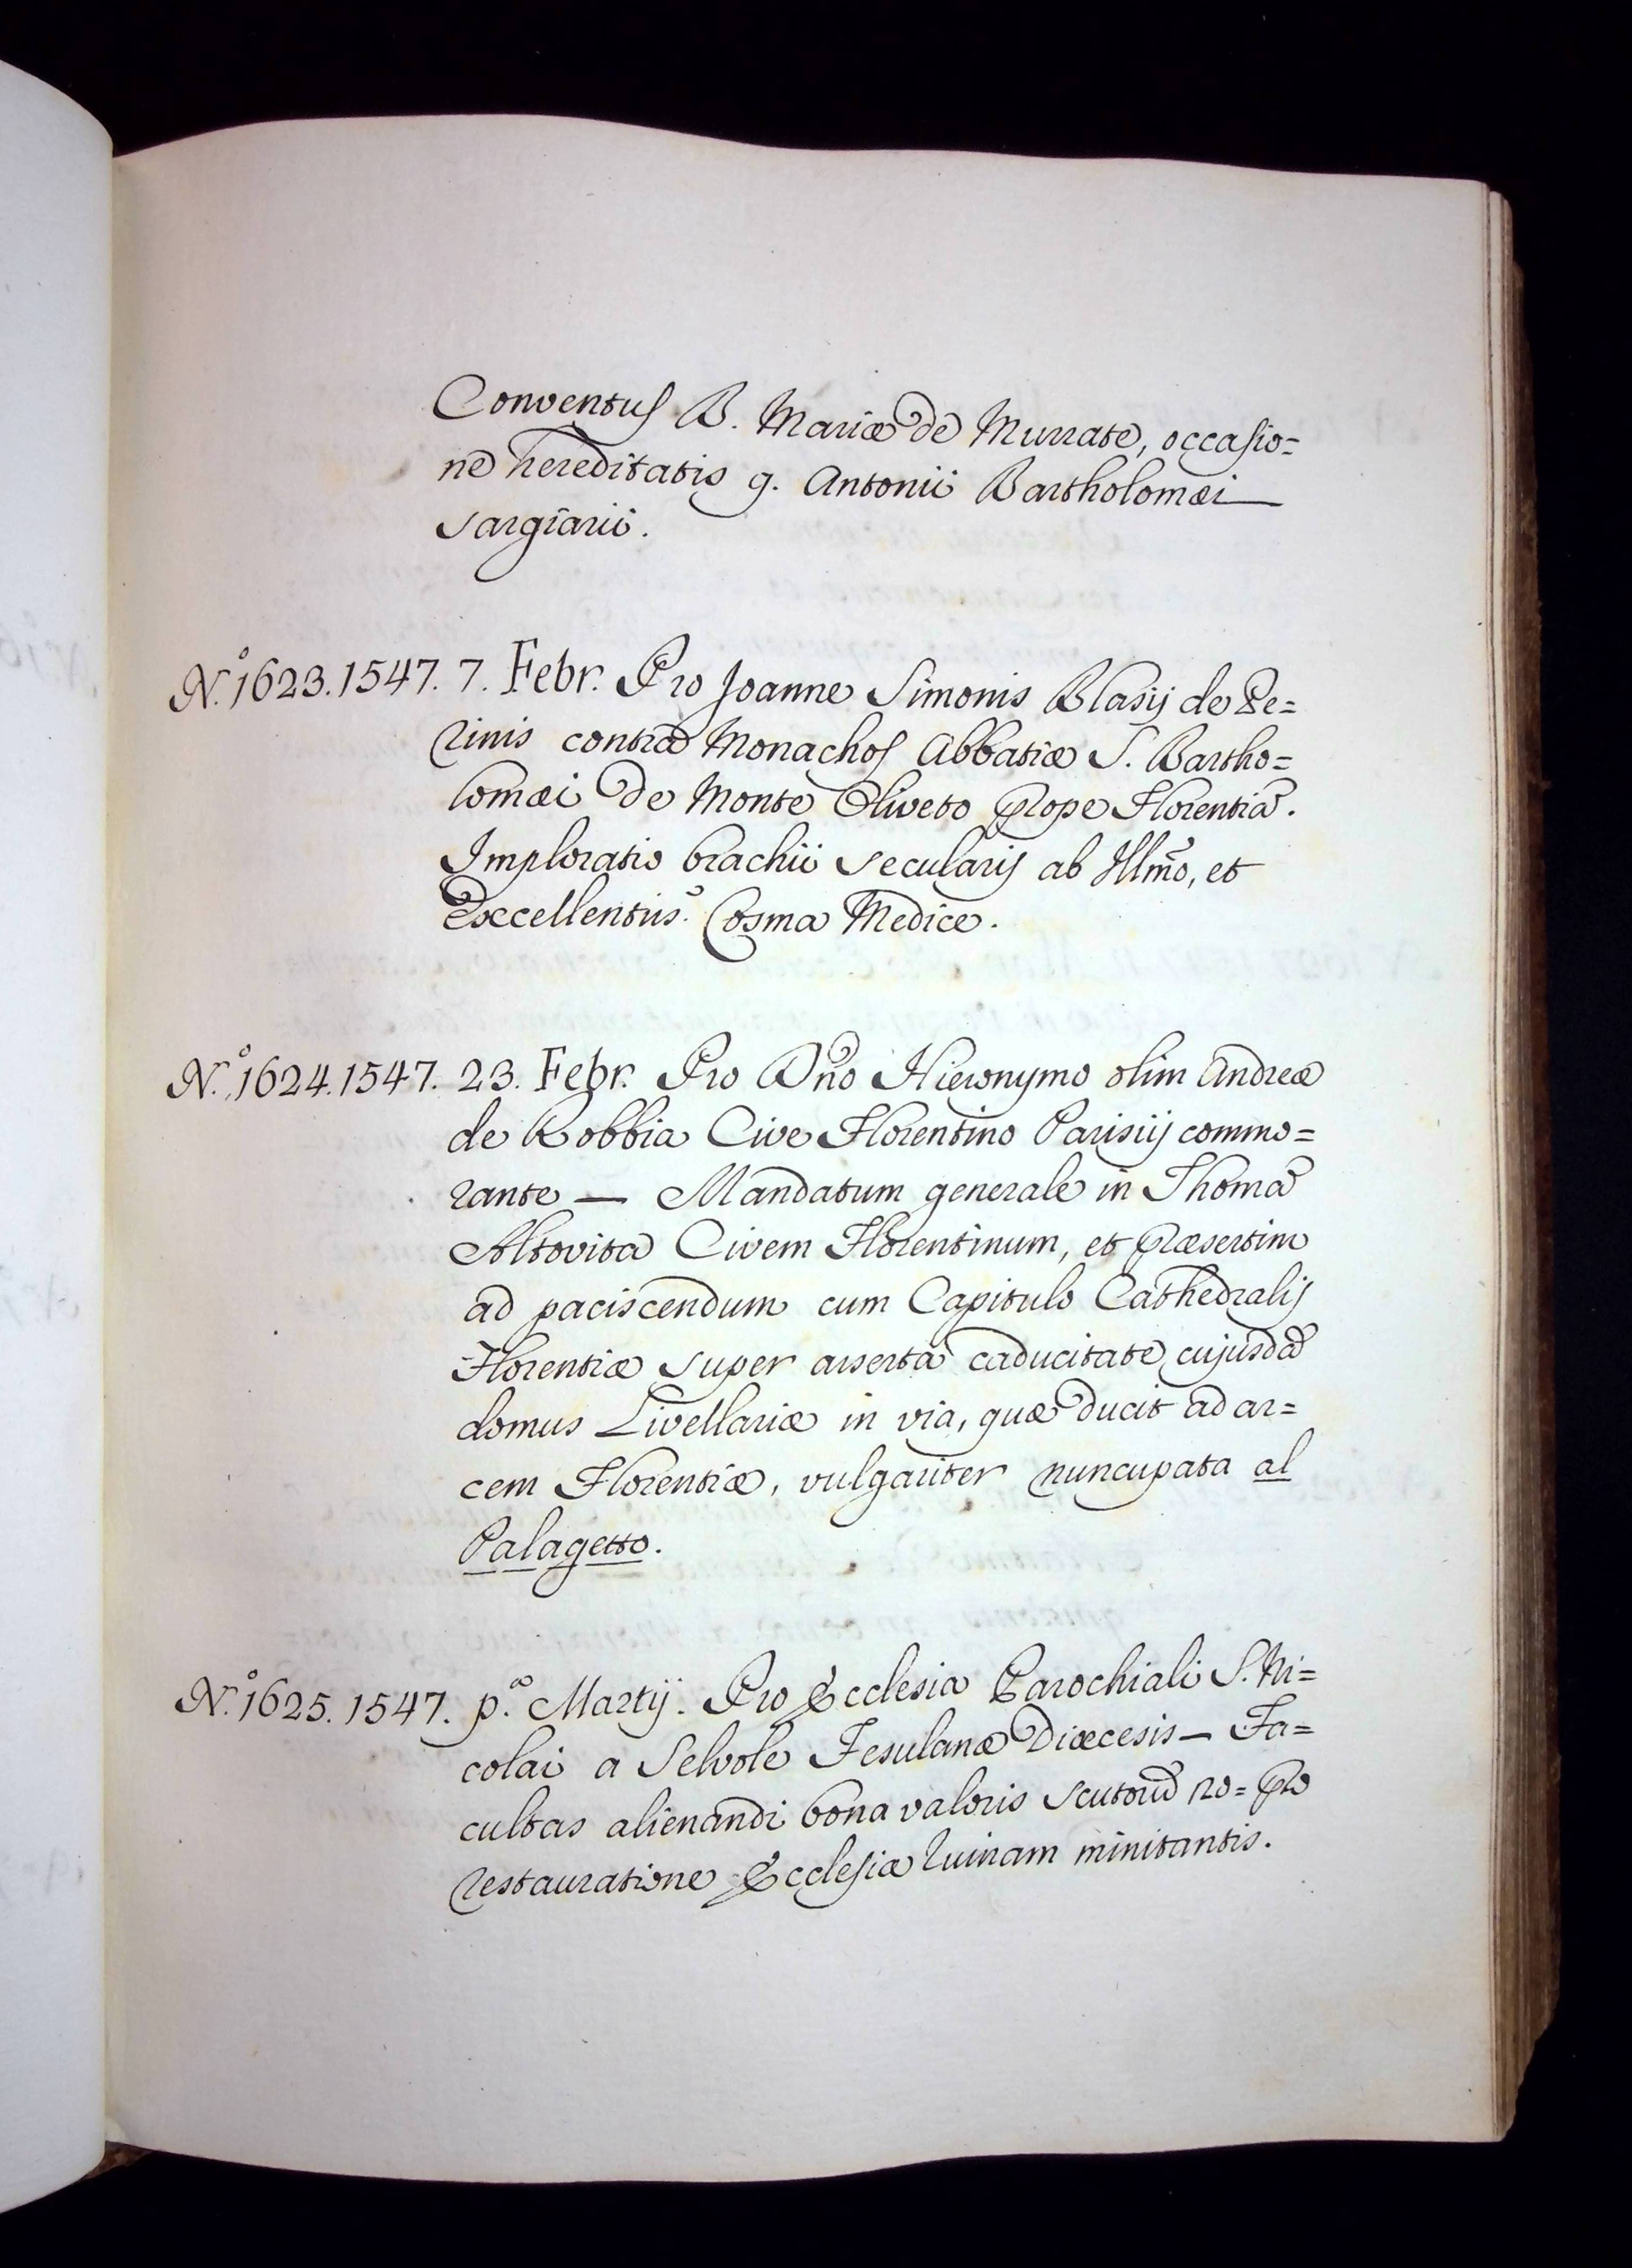 Conventus B. Mariæ de Murrate, occasio=
ne hereditatis q. Antonii Bartholomæi
Sargiarii.
N.º 1623. 1547. 7. Febr. Pro Joanne Simonis Blasij de Pe=
rinis contra Monachos Abbatiæ S. Bartho=
lomæi de Monte Oliveto prope Florentiã.
Imploratio brachii secularis ab Illmõ, et
Excellentiis.º Cosma Medice.
N.º 1624. 1547. 23. Febr. Pro Dño Hieronymo olim Andreæ
de Robbia Cive Florentino Parisiis commo=
rante — Mandatum generale in Thomã
Altovita Civem Florentinum, et præsertim
ad paciscendum cum Capitulo Cathedralis
Florentiæ super asserta caducitate cujusdã
domus Livellariæ in via, quæ ducit ad ar=
cem Florentiæ, vulgariter nuncupata al
Palagetto.
N.º 1625. 1547. p.ª Martij. Pro Ecclesia Parochiali S. Ni=
colai a Selvole Fesulanæ Diœcesis — Fa=
cultas alienandi bona valoris scutorũ 20 = pro
restauratione Ecclesiæ ruinam minitantis.